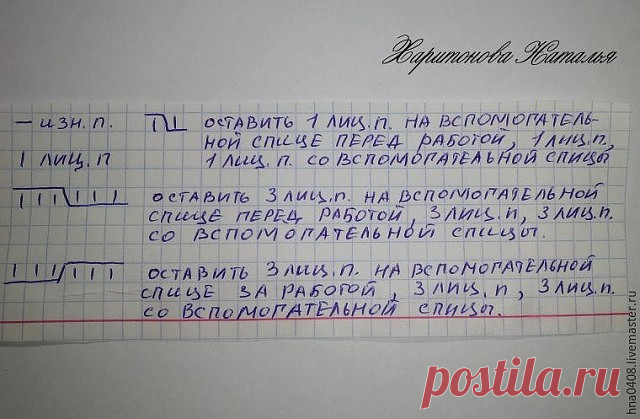 Харитонова Наталья
— изн. п.
оставить 1 лиц. п. на вспомогатель-
ной спице перед работой, 1 лиц. п.,
1 лиц. п. со вспомогательной спицы
I лиц. п
оставить 3 лиц. п. на вспомогательной
спице перед работой, 3 лиц. п, 3 лиц. п.
со вспомогательной спицы.
оставить 3 лиц. п. на вспомогательной
спице за работой, 3 лиц. п, 3 лиц. п.
со вспомогательной спицы.
postila.ru
nna0408.livemaster.ru